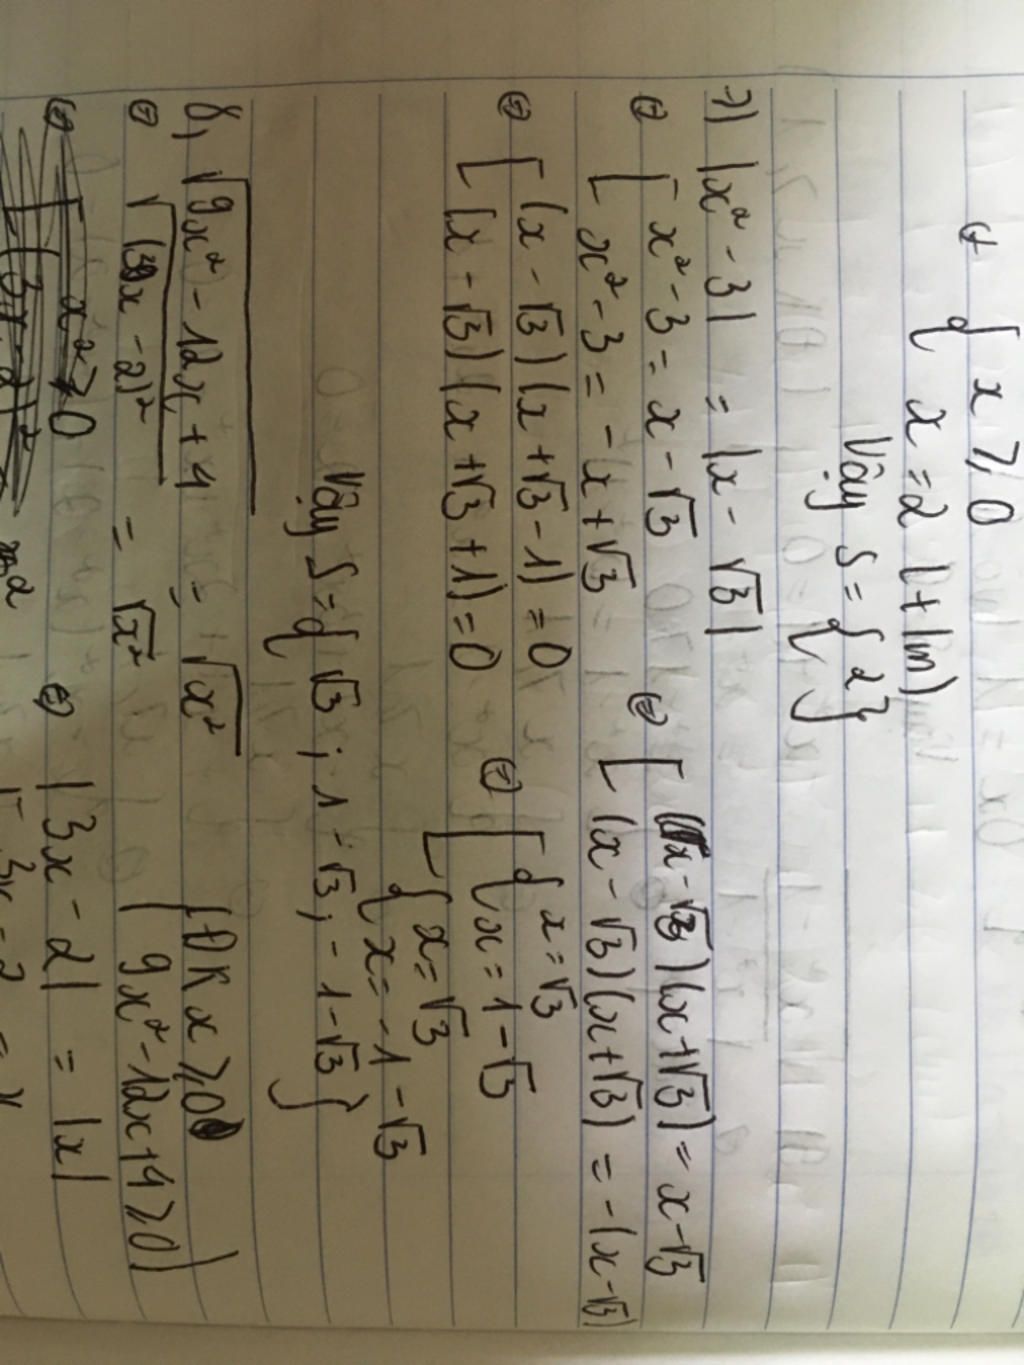 ⇔ { x ⩾ 0
x = 2 (t/m)
Vậy S = { 2 }
7) |x² - 3| = |x - √3|
⇔ [ x² - 3 = x - √3 ⇔ [ (x - √3)(x + √3) = x - √3
x² - 3 = - x + √3 (x - √3)(x + √3) = -(x - √3)
⇔ [ (x - √3)(x + √3 - 1) = 0 ⇔ [ { x = √3
x = 1 - √3
(x - √3)(x + √3 + 1) = 0 { x = √3
x = - 1 - √3
Vậy S = { √3 ; 1 - √3 ; - 1 - √3 }
8, √9x² - 12x + 4 = √x² (ĐK x ⩾ 0
⇔ √(3x - 2)² = √x² 9x² - 12x + 4 ⩾ 0)
⇔ x² ⩾ 0 ⇔ |3x - 2| = |x|